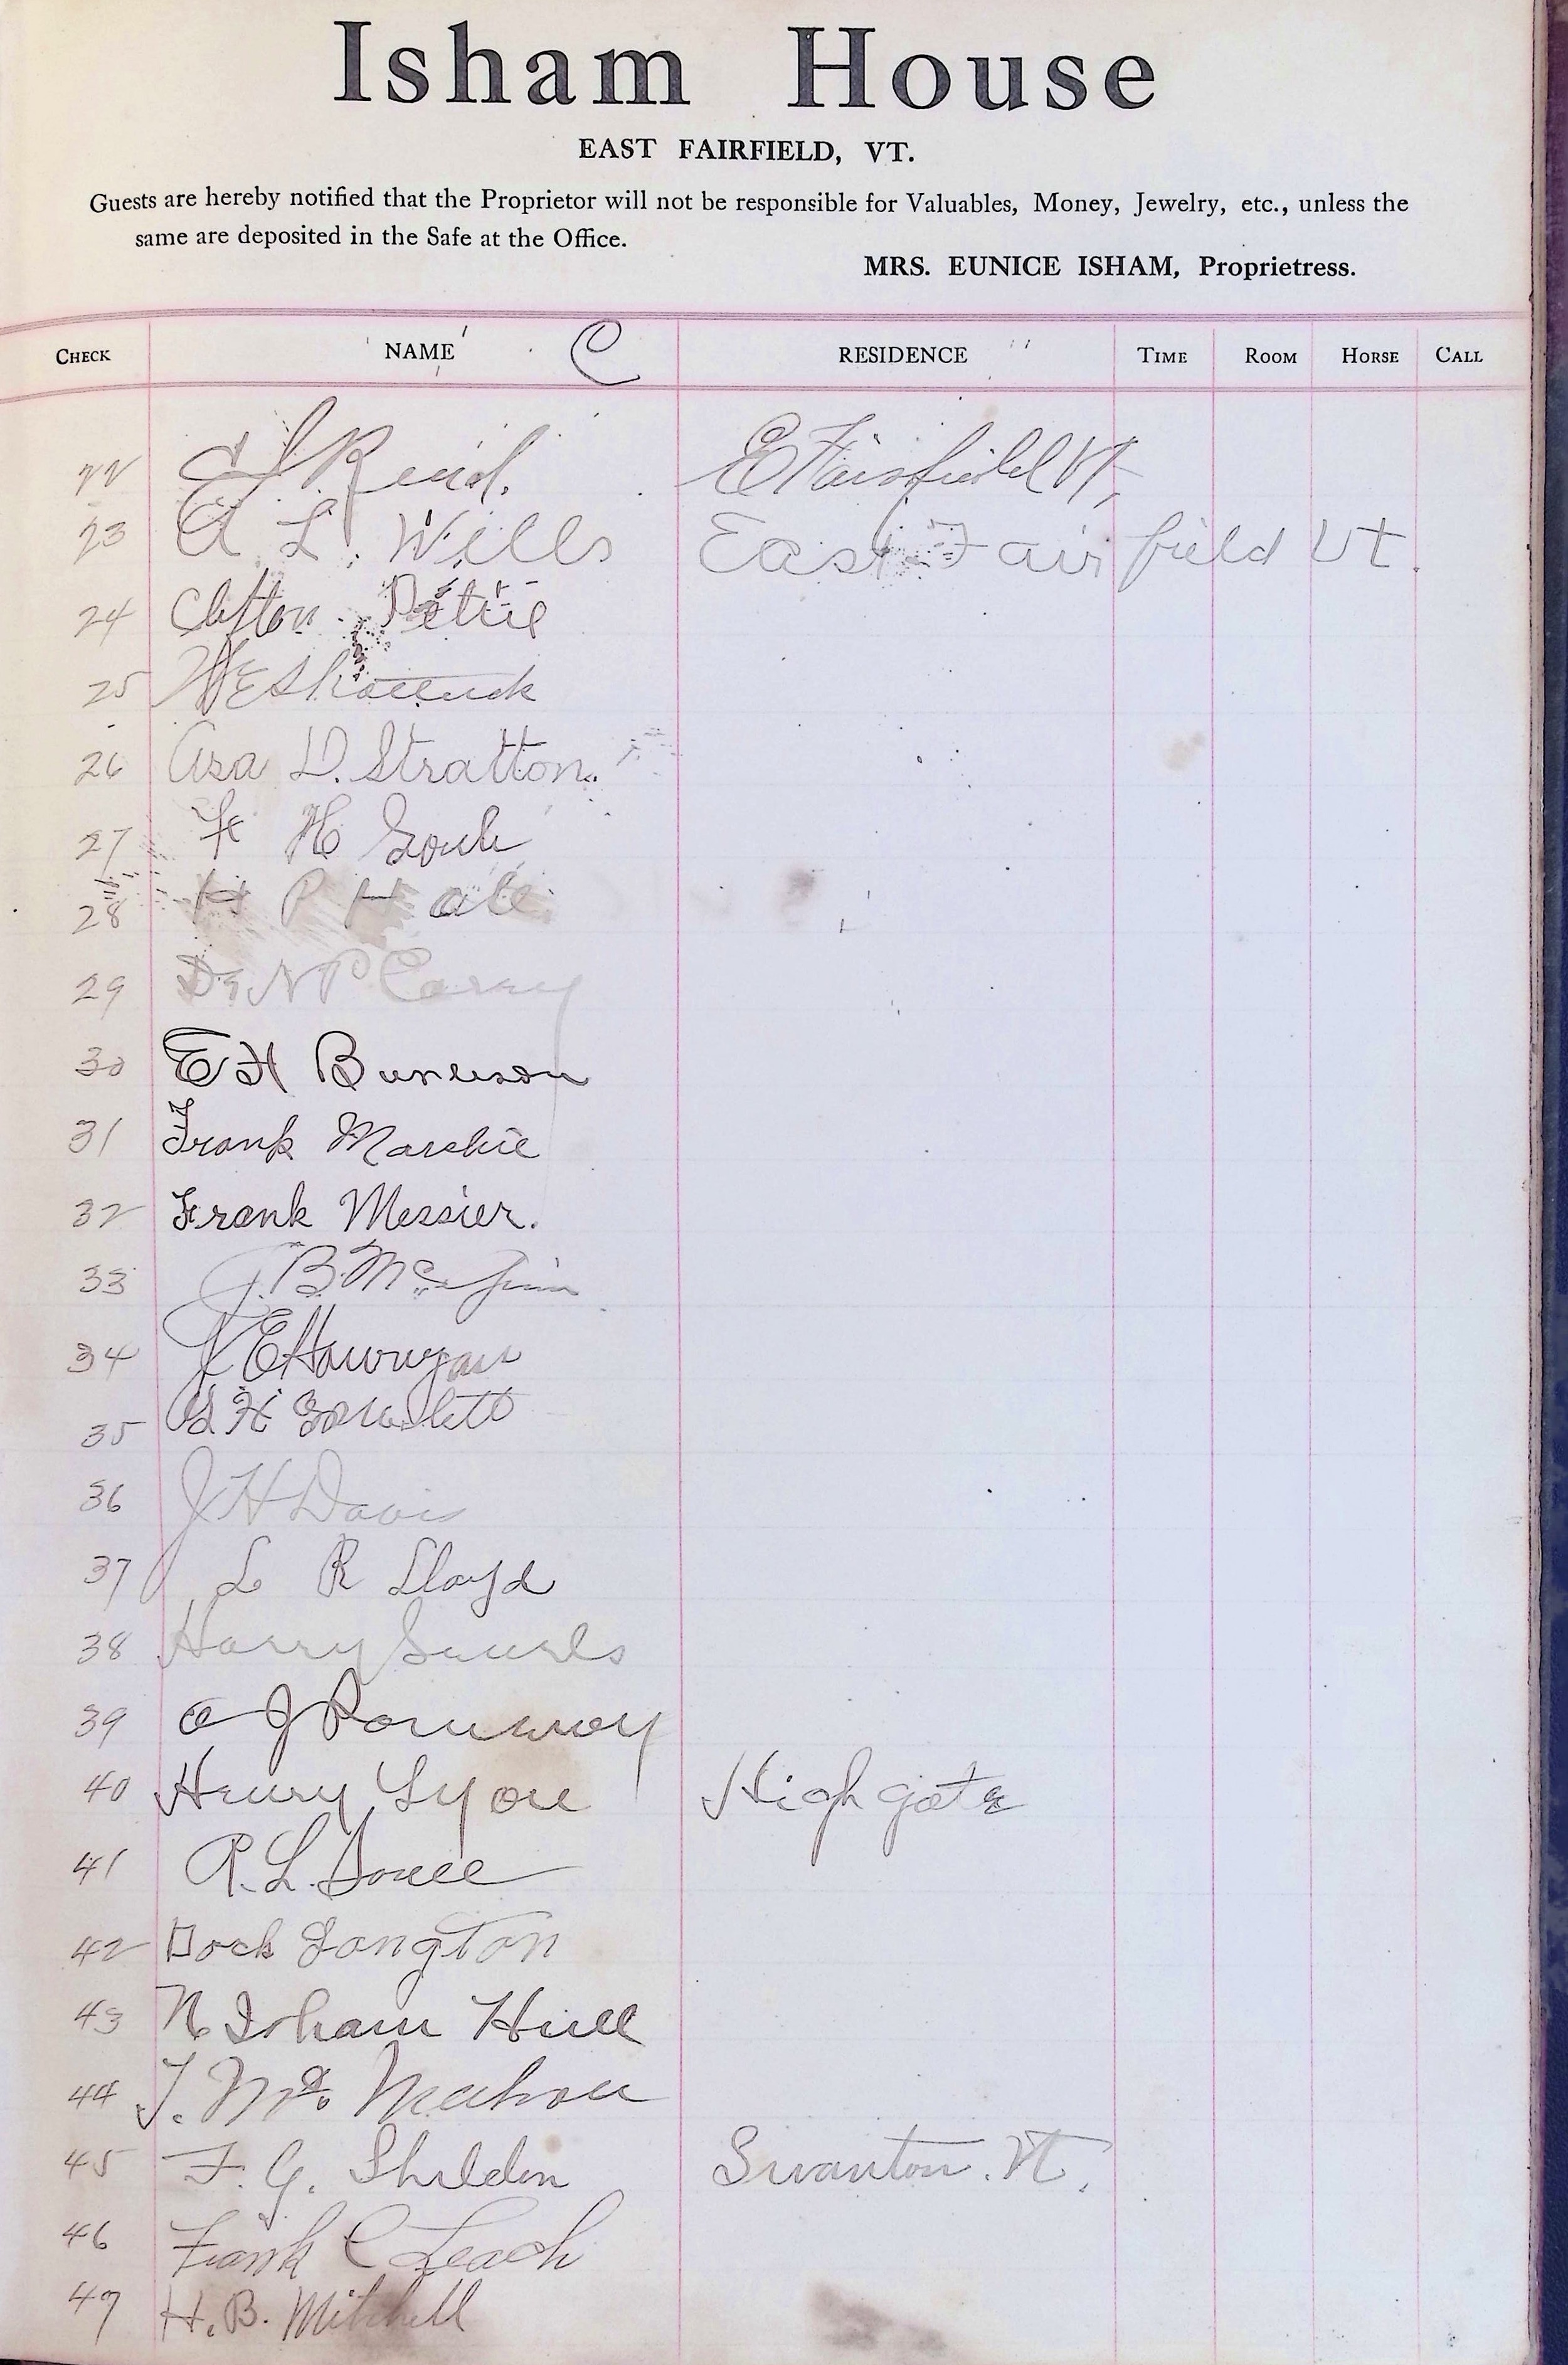 Isham House
EAST FAIRFIELD, VT.
Guests are hereby notified that the Proprietor will not be responsible for Valuables, Money, Jewelry, etc., unless the
same are deposited in the Safe at the Office.
MRS. EUNICE ISHAM, Proprietress.
CHECK NAME C RESIDENCE TIME ROOM HORSE CALL
22 Reid. E Fairfield Vt,
23 A L. Wills East Fairfield Vt.
24 Clifton Pettie
25 W E Shattuck
26 Asa D. Stratton.
27 H Soule
28 H P Hall
29 Dr N P Carey
30 E H
31 Frank
32 Frank Messier.
33 J. B. McGinn
34 E
35 H
36 J H Davis
37 L R Lloyd
38 Harry Searls
39 J Pomeroy
40 Henry Lyon Highgate
41 R. L. Soule
42 Dock Langton
43 N Isham Hull
44 T. Mc Mahon
45 F. G. Sheldon Swanton. Vt.
46 Frank C Leach
47 H. B. Mitchell